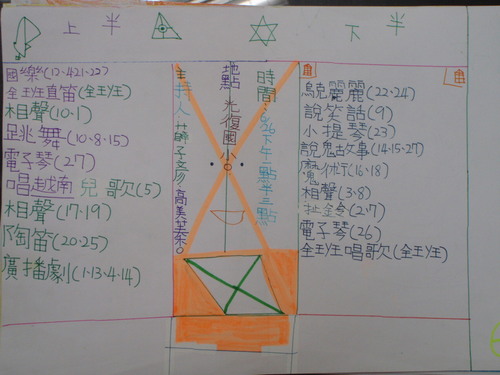 上半
國樂(12.4.21.22)
全班直笛(全班)
相聲(10.1)
跳舞(10.8.15)
電子琴(27)
唱越南兒歌(5)
相聲(17.19)
陶笛(20.25)
廣播劇(1.13.4.14)
時間:6/26下午一點半~三點
地點:光復國小
主持人:
下半
烏克麗麗(22.24)
說笑話(9)
小提琴(23)
說鬼故事(14.15.27)
魔術(16.18)
相聲(3.8)
扯鈴(2.7)
電子琴(26)
全班唱歌(全班)